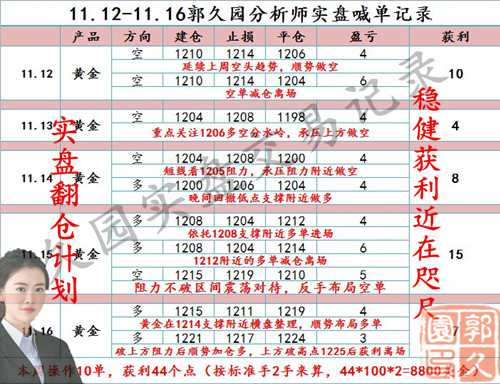 11.12-11.16郭久园分析师实盘喊单记录
产品 方向 建仓 止损 平仓 盈亏 获利
11.12 黄金 空 1210 1214 1206 4 10
延续上周空头趋势，顺势做空
空 1210 1214 1204 6
空单减仓离场
11.13 黄金 空 1204 1208 1198 4 4
重点关注1206多空分水岭，承压上方做空
11.14 黄金 空 1204 1208 1200 4 8
短线看1205阻力，承压阻力附近做空
多 1200 1204 4
晚间回撤低点支撑附近做多
11.15 黄金 多 1208 1204 1212 4 15
依托1208支撑附近多单进场
多 1208 1204 1214 6
1212附近的多单减仓离场
空 1215 1219 1210 5
阻力不破区间震荡对待，反手布局空单
11.16 黄金 多 1215 1211 1219 4 7
黄金在1214支撑附近横盘整理，顺势布局多单
多 1221 1217 1224 3
破上方阻力后顺势加仓多，上方破高点1225后获利离场
本周操作10单，获利44个点（按标准手2手来算，44*100*2=8800美金）
实盘翻仓计划
稳健获利近在咫尺
久园实盘交易记录
郭久園